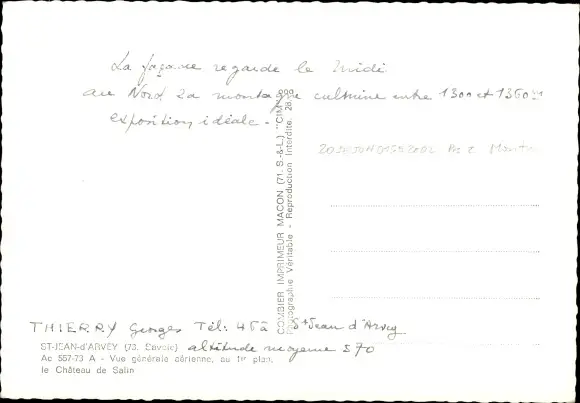 La façade regarde le Midi
au Nord La montagne culmine entre 1300 et 1350 m
exposition idéale.
COMBIER IMPRIMEUR MACON (71. S.-&-L.) "CIM"
Photographie Véritable - Reproduction Interdite.
THIERRY Georges Tél: 45 à St Jean d'Arvey
ST-JEAN-d'ARVEY (73. Savoie) altitude moyenne 570
Ac 557-73 A - Vue générale aérienne, au 1er plan,
le Château de Salin